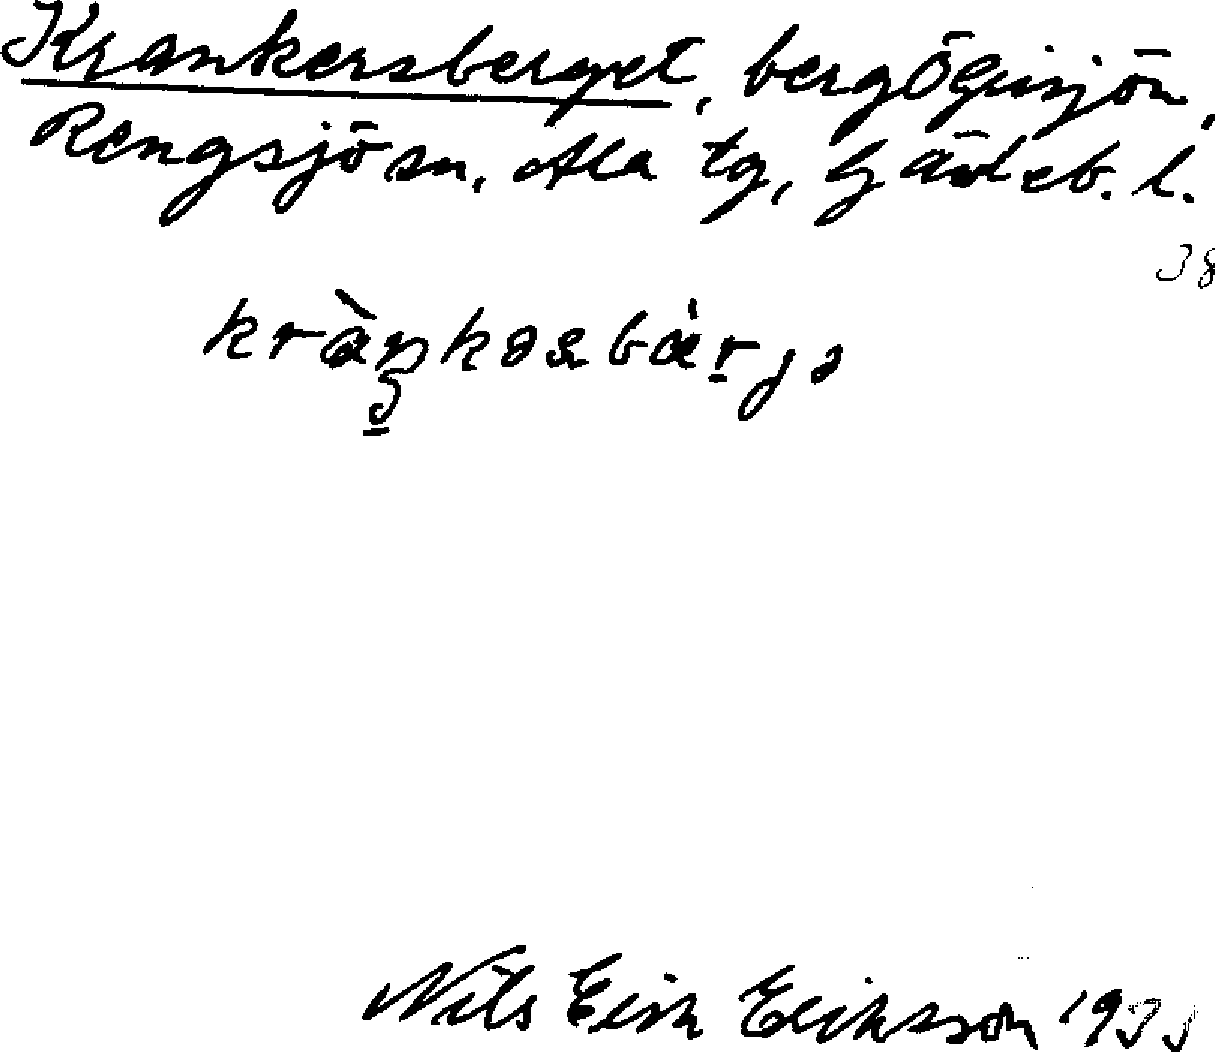 Krankersberget, berg Ö Grisjön,
Rengsjö sn, Ala tg, Gävleb. l.
38
kràŋkəsbàrjə
Nils Erik Eriksson